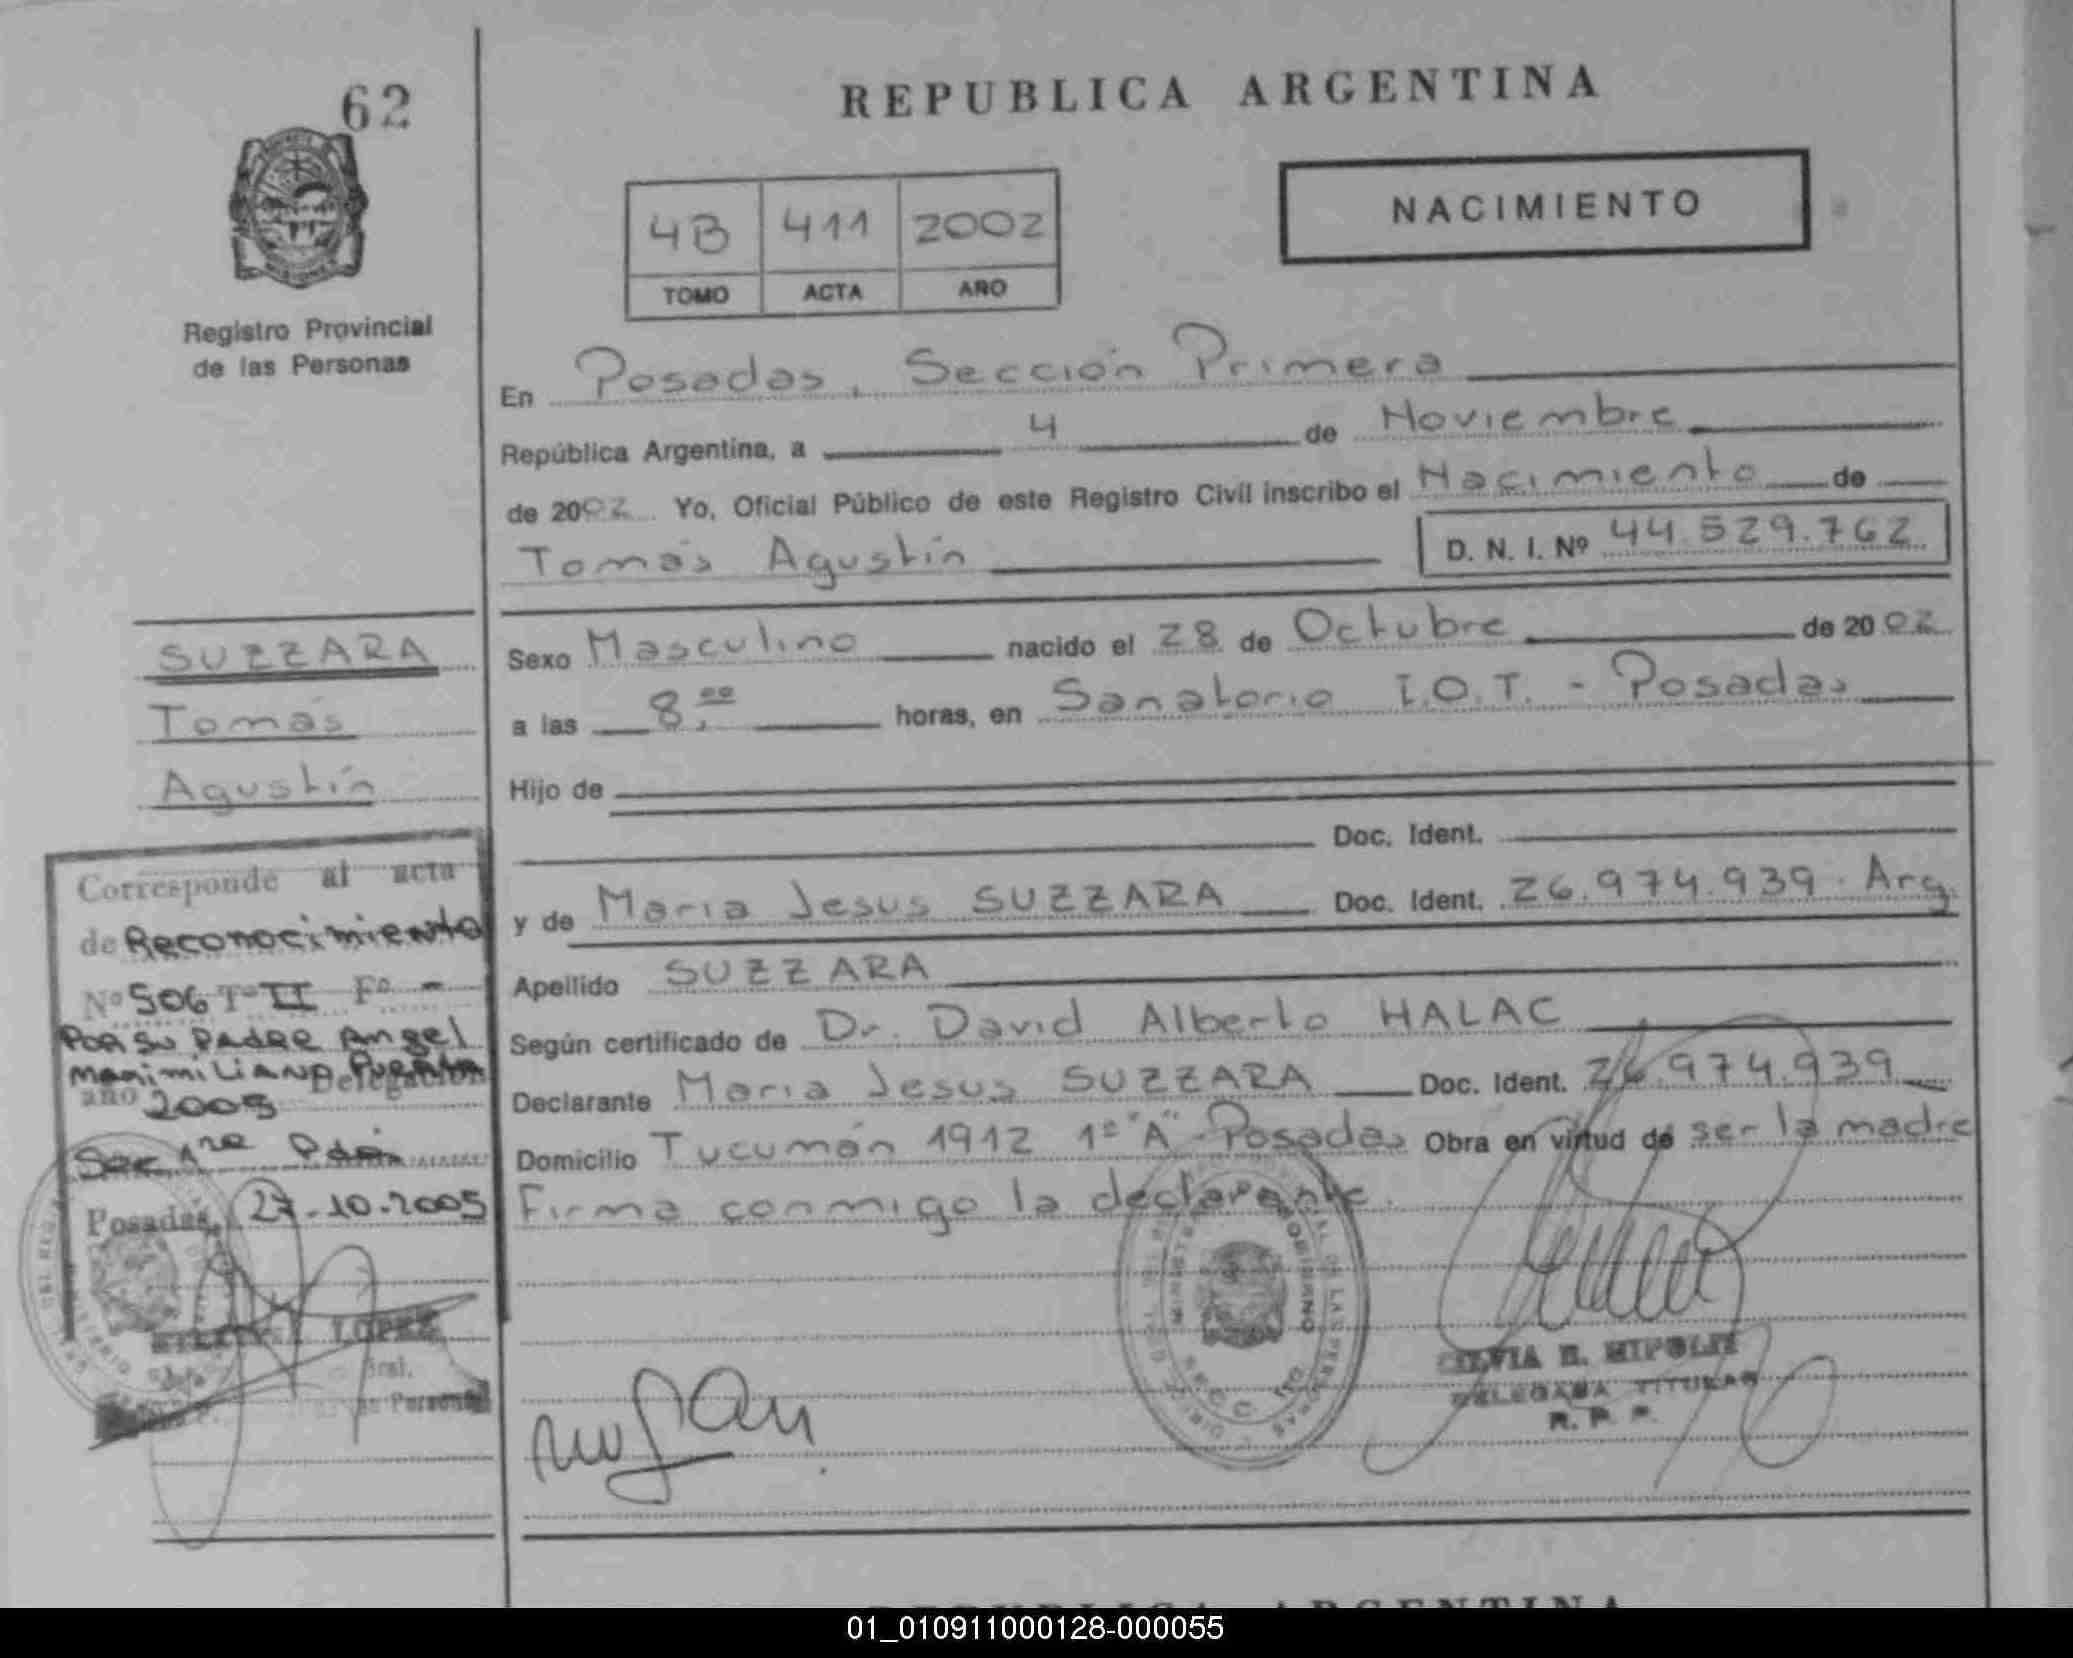 62
REPUBLICA ARGENTINA
NACIMIENTO
4B 411 2002
TOMO ACTA AÑO
Registro Provincial
de las Personas
En Posadas, Sección Primera
República Argentina, a 4 de Noviembre
de 2002 Yo, Oficial Público de este Registro Civil inscribo el Nacimiento de
Tomás Agustín D. N. I. Nº 44.529.762
SUZZARA
Tomás
Agustín
Sexo Masculino nacido el 28 de Octubre de 2002
a las 8,00 horas, en Sanatorio I.O.T. - Posadas
Hijo de
Doc. Ident.
y de Maria Jesus SUZZARA Doc. Ident. 26.974.939. Arg.
Apellido SUZZARA
Según certificado de Dr. David Alberto HALAC
Declarante Maria Jesus SUZZARA Doc. Ident. 26.974.939
Domicilio Tucumán 1912 1º "A" - Posadas Obra en virtud de ser la madre
Firma conmigo la declarante.
Corresponde al acta
de Reconocimiento
Nº 506 Tº II Fº -
POR SU PADRE Angel
Maximiliano
Delegación
año 2005
Sec 1ra
Posadas, 27-10-2005
LOPEZ
Gral.
SILVIA
DELEGADA TITULAR
R. P. P.
REPUBLICA ARGENTINA
01_010911000128-000055